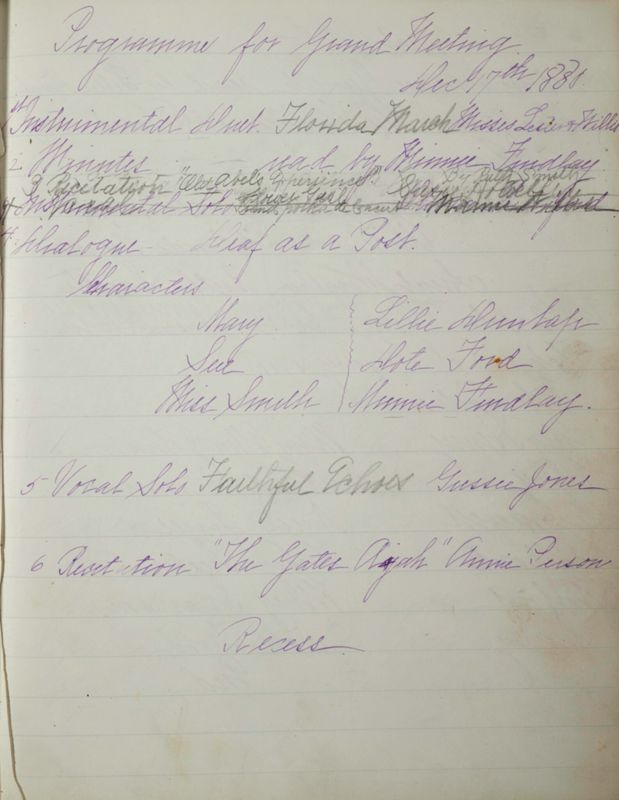 Programme for Grand Meeting.
Dec 17th 1880
1 Instrumental Duet. Florida March Misses Lizzie & Willie
2 Minutes read by Minnie Findlay
3 Recitation
4 Instrumental Solo
4 Dialogue Deaf as a Post.
Characters
Mary Lillie Dunlap
Sue Dote Ford
Miss Smith Minnie Findlay.
5 Vocal Solo Faithful Echoes Gussie Jones
6 Recitation "The Gates Ajah" Annie Person
Recess